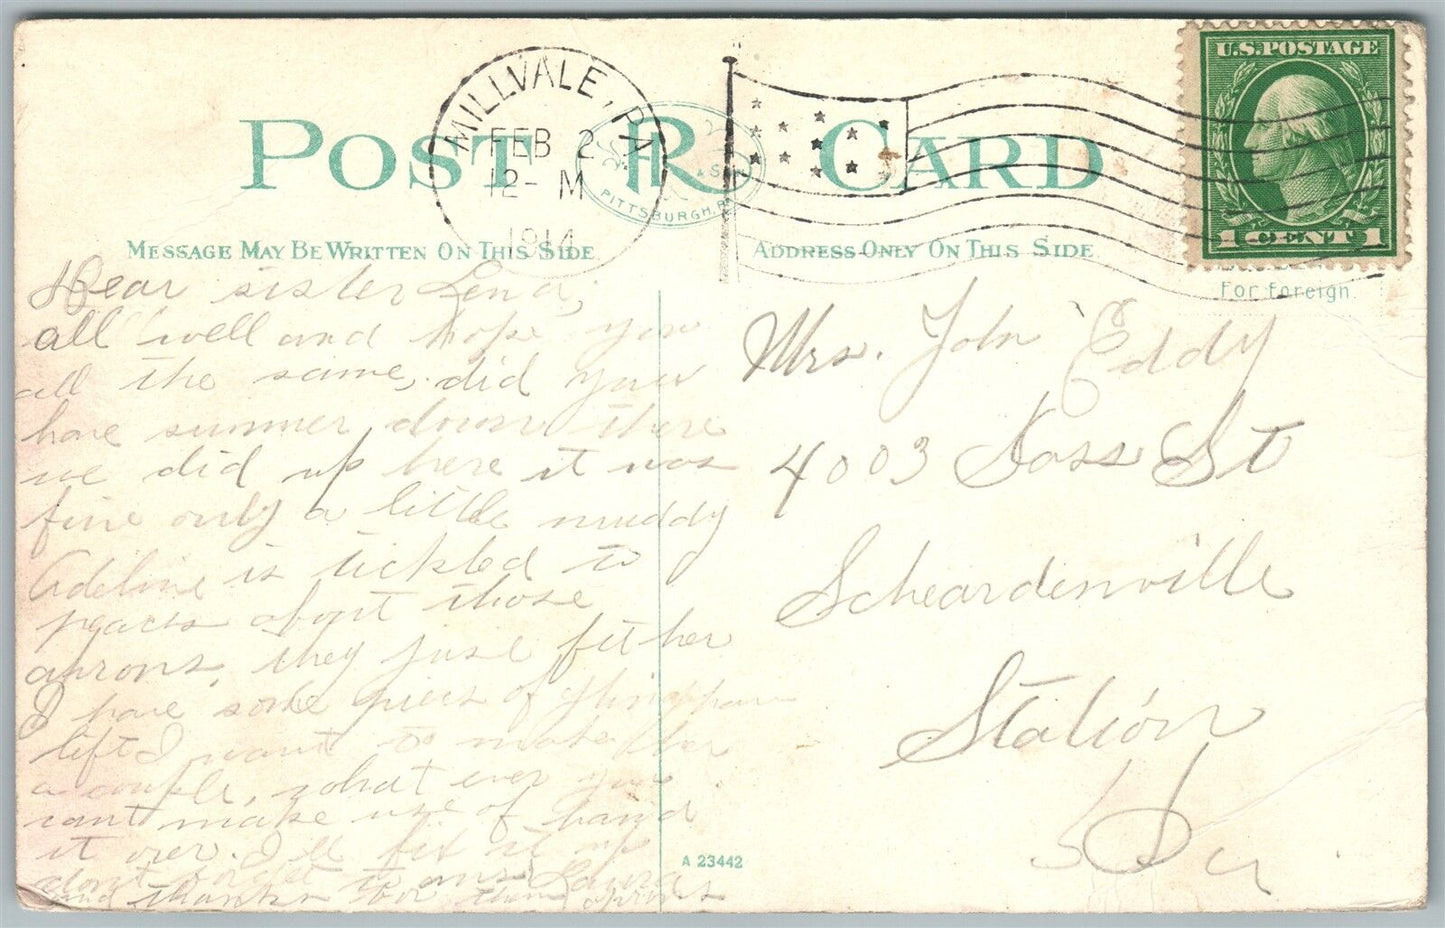 POST CARD
R
& S
PITTSBURGH, PA
MILLVALE, PA
FEB 2
12- M
1914
U.S. POSTAGE
1 CENT 1
For Foreign.
MESSAGE MAY BE WRITTEN ON THIS SIDE
ADDRESS ONLY ON THIS SIDE
Dear sister Lena,
all well and hope you
all the same, did you
have summer down there
we did up here it was
fine only a little muddy
Adeline is tickled to
about those
aprons, they just fit her
I have some pieces of
left I want to make her
a couple, what ever you
cant make use of hand
it over. I ll fix it up
dont forget to ans Laura
and thanks for them aprons
Mrs. John Eddy
4003 St
Scheardenville
Station
A 23442